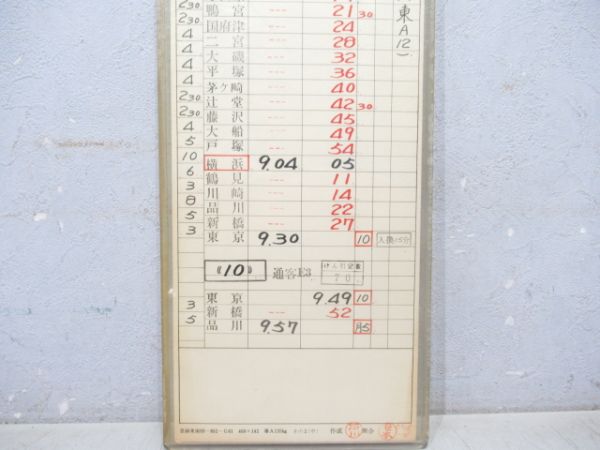 230 鴨宮 --- 21 30
230 国府津 --- 24
4 二宮 --- 28
4 大磯 --- 32
4 平塚 --- 36
4 茅ヶ崎 --- 40
230 辻堂 --- 42 30
230 藤沢 --- 45
4 大船 --- 49
5 戸塚 --- 54
10 横浜 9.04 05
6 鶴見 --- 11
3 川崎 --- 14
8 品川 --- 22
5 新橋 --- 27
3 東京 9.30 10 入換15分
東A12)
《10》 通客E3 けん引定数 70
東京 9.49 10
3 新橋 --- 52
5 品川 9.57
作成 照合